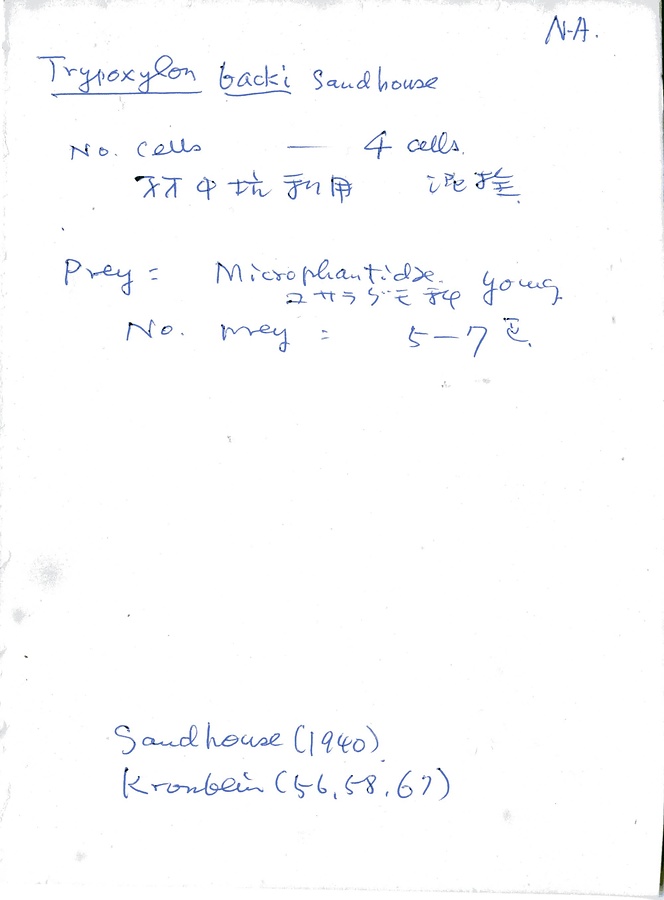 N-A.
Trypoxylon backi Sandhouse
No. cells — 4 cells.
材中坑利用
Prey = Microphantidae.
コサラグモ科 young
No. prey : 5-7
Sandhouse (1940)
Krombein (56, 58, 67)